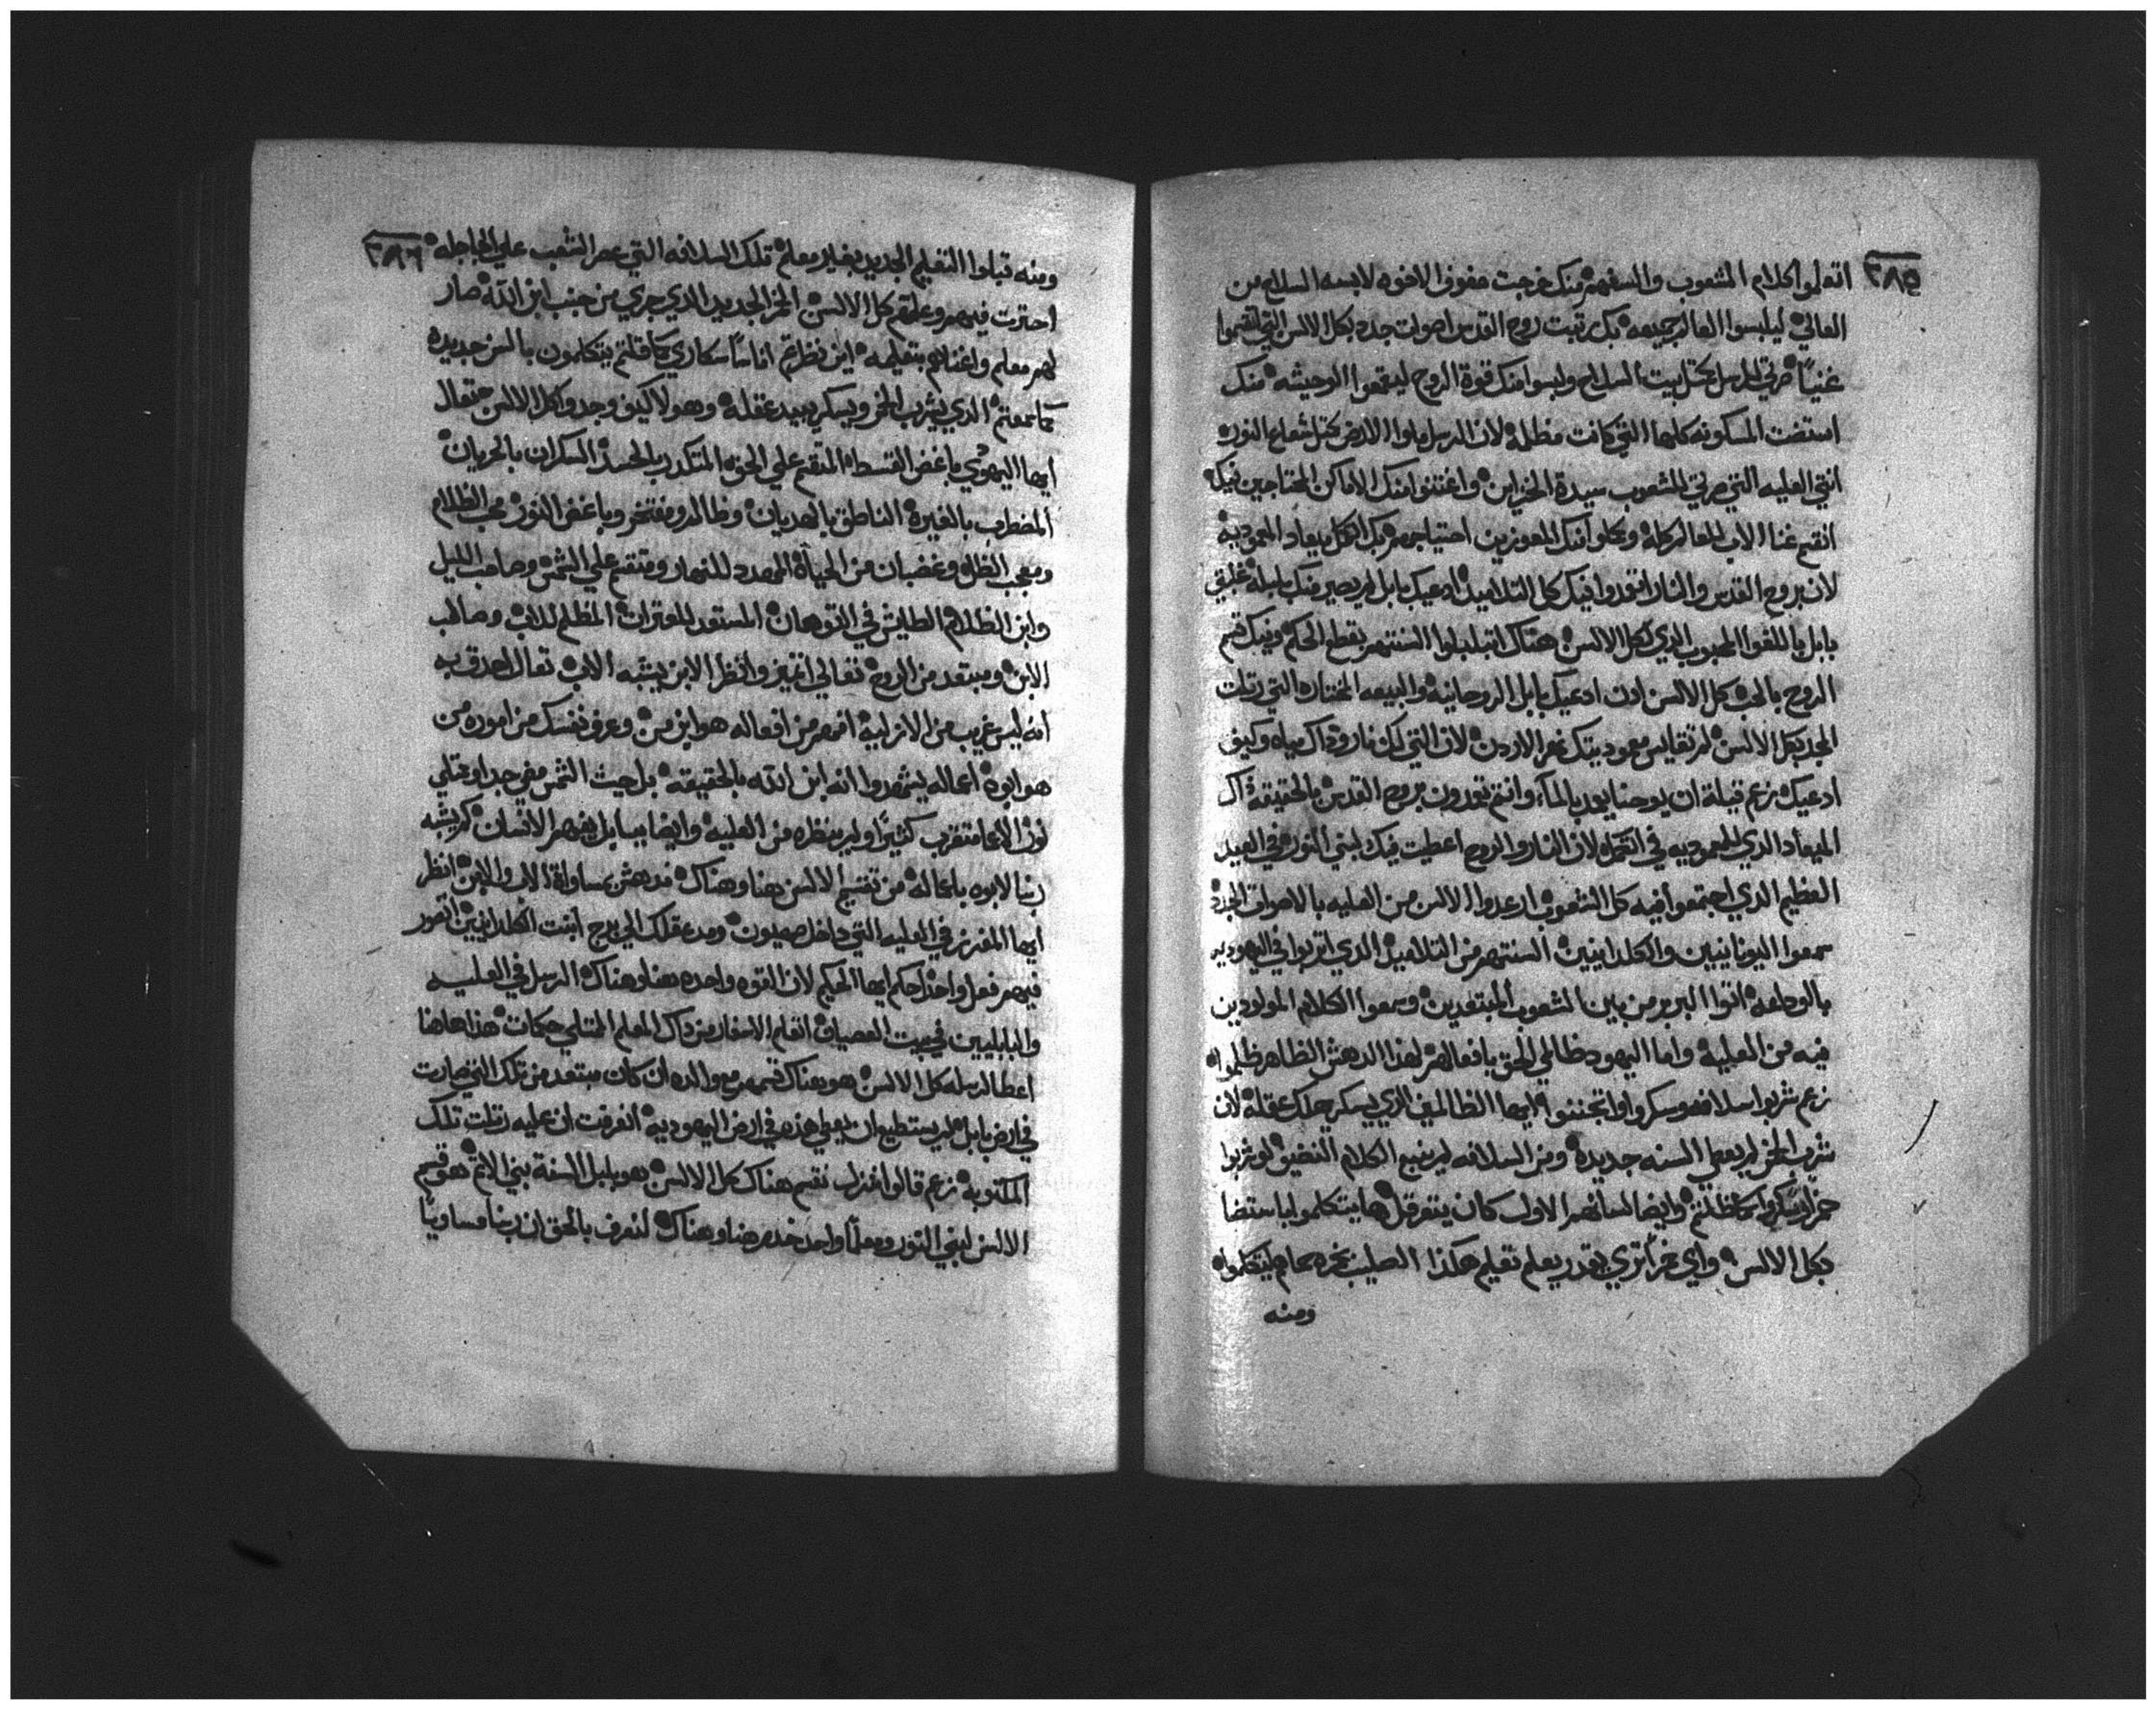 ٢٨٥
اتعلموا كلام الشعوب والسفهم منك خرجت صفوف الافوه لابسه السلاح من
العالي ليلبسوا العالم جميعه بك رتبت روح القدس اصوات جدد بكل الالسن التي اتقسموا
غنياً صرتي للرسل بمثل بيت السلاح ولبسوا منك قوة الروح ليقمعوا الوحيشه منك
استضت المسكونه كلها التي كانت مظلمه لان الرسل ملوا الارض بمثل شعاع النور
انتي العليه التي صرتي للشعوب سيدة الخزاين واغتنوا منك الاماكن المحتاجين فيك
انقسم غنا الاب للعالم كله وكلوا منك المعوزين احتياجهم بك الكل ميعاد المعموديه
لان بروح القدس والنار انعمدوا فيك كل التلاميذ ادعيك بابل لم يصير منك بلبله غلبتي
بابل باللغوا المحبوب الذي لكل الالسن هناك اتبلبلوا السنتهم بقطع الحكم وفيك قسم
الروح بالحب كل الالسن اذن ادعيك بابل الروحانيه والبيعه المختاره التي رتلت
المجد بكل الالسن لم تقايس معموديتك نهر الاردن لان التي لكن نار وذاك مياه وكيف
ادعيك زعم قبلة ان يوحنا يعمد بالمآء وانتم تعمدون بروح القدس بالحقيقة ذاك
الميعاد الذي للمعموديه في اتكمله لان النار والروح اعطيت فيك لبني النور في العيد
العظيم الذي اجتمعوا فيه كل الشعوب ارعدوا الالسن من العليه بالاصوات الجدد
سمعوا اليونانيين والكلدانيين السنتهم من التلاميذ الذي اتربوا في اليهوديه
بالوداعه اتوا البربر من بين الشعوب المبتعدين وسمعوا الكلام المولودين
فيه من العليه واما اليهود ظالمي الحق بافعالهم لهذا الدهش الظاهر ظلموا
زعم شربوا سلافه وسكروا واتجننوا ايها الظالمين الذي يسكر يهلك عقله لان
شرب الخمر لم يعطي السنه جديده ومن السلافه لم ينبع الكلام النضيف لو شربوا
خمر اوسكروا كما ظلمتم وايضا لسانهم الاول كان يتعرقل ها يتكلموا بلا استضا
بكل الالسن واي خمراً تري يقدر يعلم تعليم هكذا الصليب بخره معاهم ليتكلموا
ومنه
٢٨٦
ومنه قبلوا التعليم الجديد بغير معلم تلك السلافه التي عصر الشعب علي الجاجله
احتزت فيهم وعلمتهم كل الالسن الخمر الجديد الذي جري من جنب ابن الله صار
لهم معلم واغناهم بتعليمه اين نظرتم اناساً سكاري كما قلتم يتكلمون بالسن جديده
كما سمعتم الذي يشرب الخمر ويسكر يبيد عقله وهولا كيف وجدوا كل الالسن تعال
ايها اليهودي باغض القسط المنقم علي الحق المتكدر بالحسد السكران بالحريان
المضطرب بالغيره الناطق بالهديان وظالم ومفتخر وباغض النور محب الظلام
ومعجب الظله وغضبان من الحياة المهدد للنهار ومتقم علي الشمس وصاحب الليل
وابن الظلام الطايش في التوهان المستعد للعترات المظلم للاب وصالب
الابن ومبتعد من الروح تعالي اتميز وانظر الابن يشبه الاب تعال اصدق به
انه ليس غريب من الازليه افهم من افعاله هو ابن من وعرف نفسك من اموره من
هو ابوه اعماله يشهدوا انه ابن الله بالحقيقه بل حيث الشمس مضي جدا وممتلي
نور الاعما متغرب كثيراً ولم ينظره من العليه وايضا ببابل يفهم الانسان كم يشبه
ربنا لابوه باعماله من تقسيم الالسن هنا وهناك مدهش بمساواة الاب والابن انظر
ايها المفرز في العليه التي داخل صهيون ومد عقلك الي برج ابنت الكلدانيين اتصور
فيهم فعل واحد احكم ايها الحكيم لان القوه واحده هنا وهناك الرسل في العليه
والبابليين في بيت العصيان اتعلم الاسفار من ذاك المعلم المتلي حكمات هذا هاهنا
اعطا لرسله كل الالسن هو وهناك قسمهم مع والده ان كان مبتعد من تلك التي صارت
في ارض بابل لم يستطيع ان يعطي هذه في ارض اليهوديه انعرفت ان عليه رتلت تلك
المكتوبه زعم قالوا ننزل نقسم هناك كل الالسن هو بلبل السنة بني الاتم هو قسم
الالسن لبني النور ومعلماً واحد خدم هنا وهناك لنعرف بالحق ان ربنا مساوياً